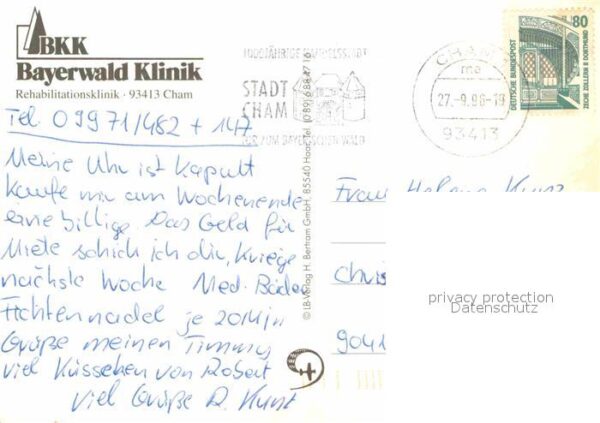 BKK
Bayerwald Klinik
Rehabilitationsklinik · 93413 Cham
Tel. 09971/482 + 147
Meine Uhr ist Kaputt
kaufe mir am Wochenende
eine billige. Das Geld für
Miete schick ich dir, Kriege
nächste Woche Med. Bäder
Fichtennadel je 20 Min
Grüße meinen Timmy
viel Küsschen von Robert
Viel Grüße R. Kunz
STADT
CHAM
TOR ZUM BAYERISCHEN WALD
CHAM
27.-9.96-18
93413
80
DEUTSCHE BUNDESPOST
ZECHE ZOLLERN II DORTMUND
© LB-Verlag H. Bertram GmbH, 85540 Haar, Tel. (089) 688 47 16
Frau Helene Kunz
Chris
9041
privacy protection
Datenschutz